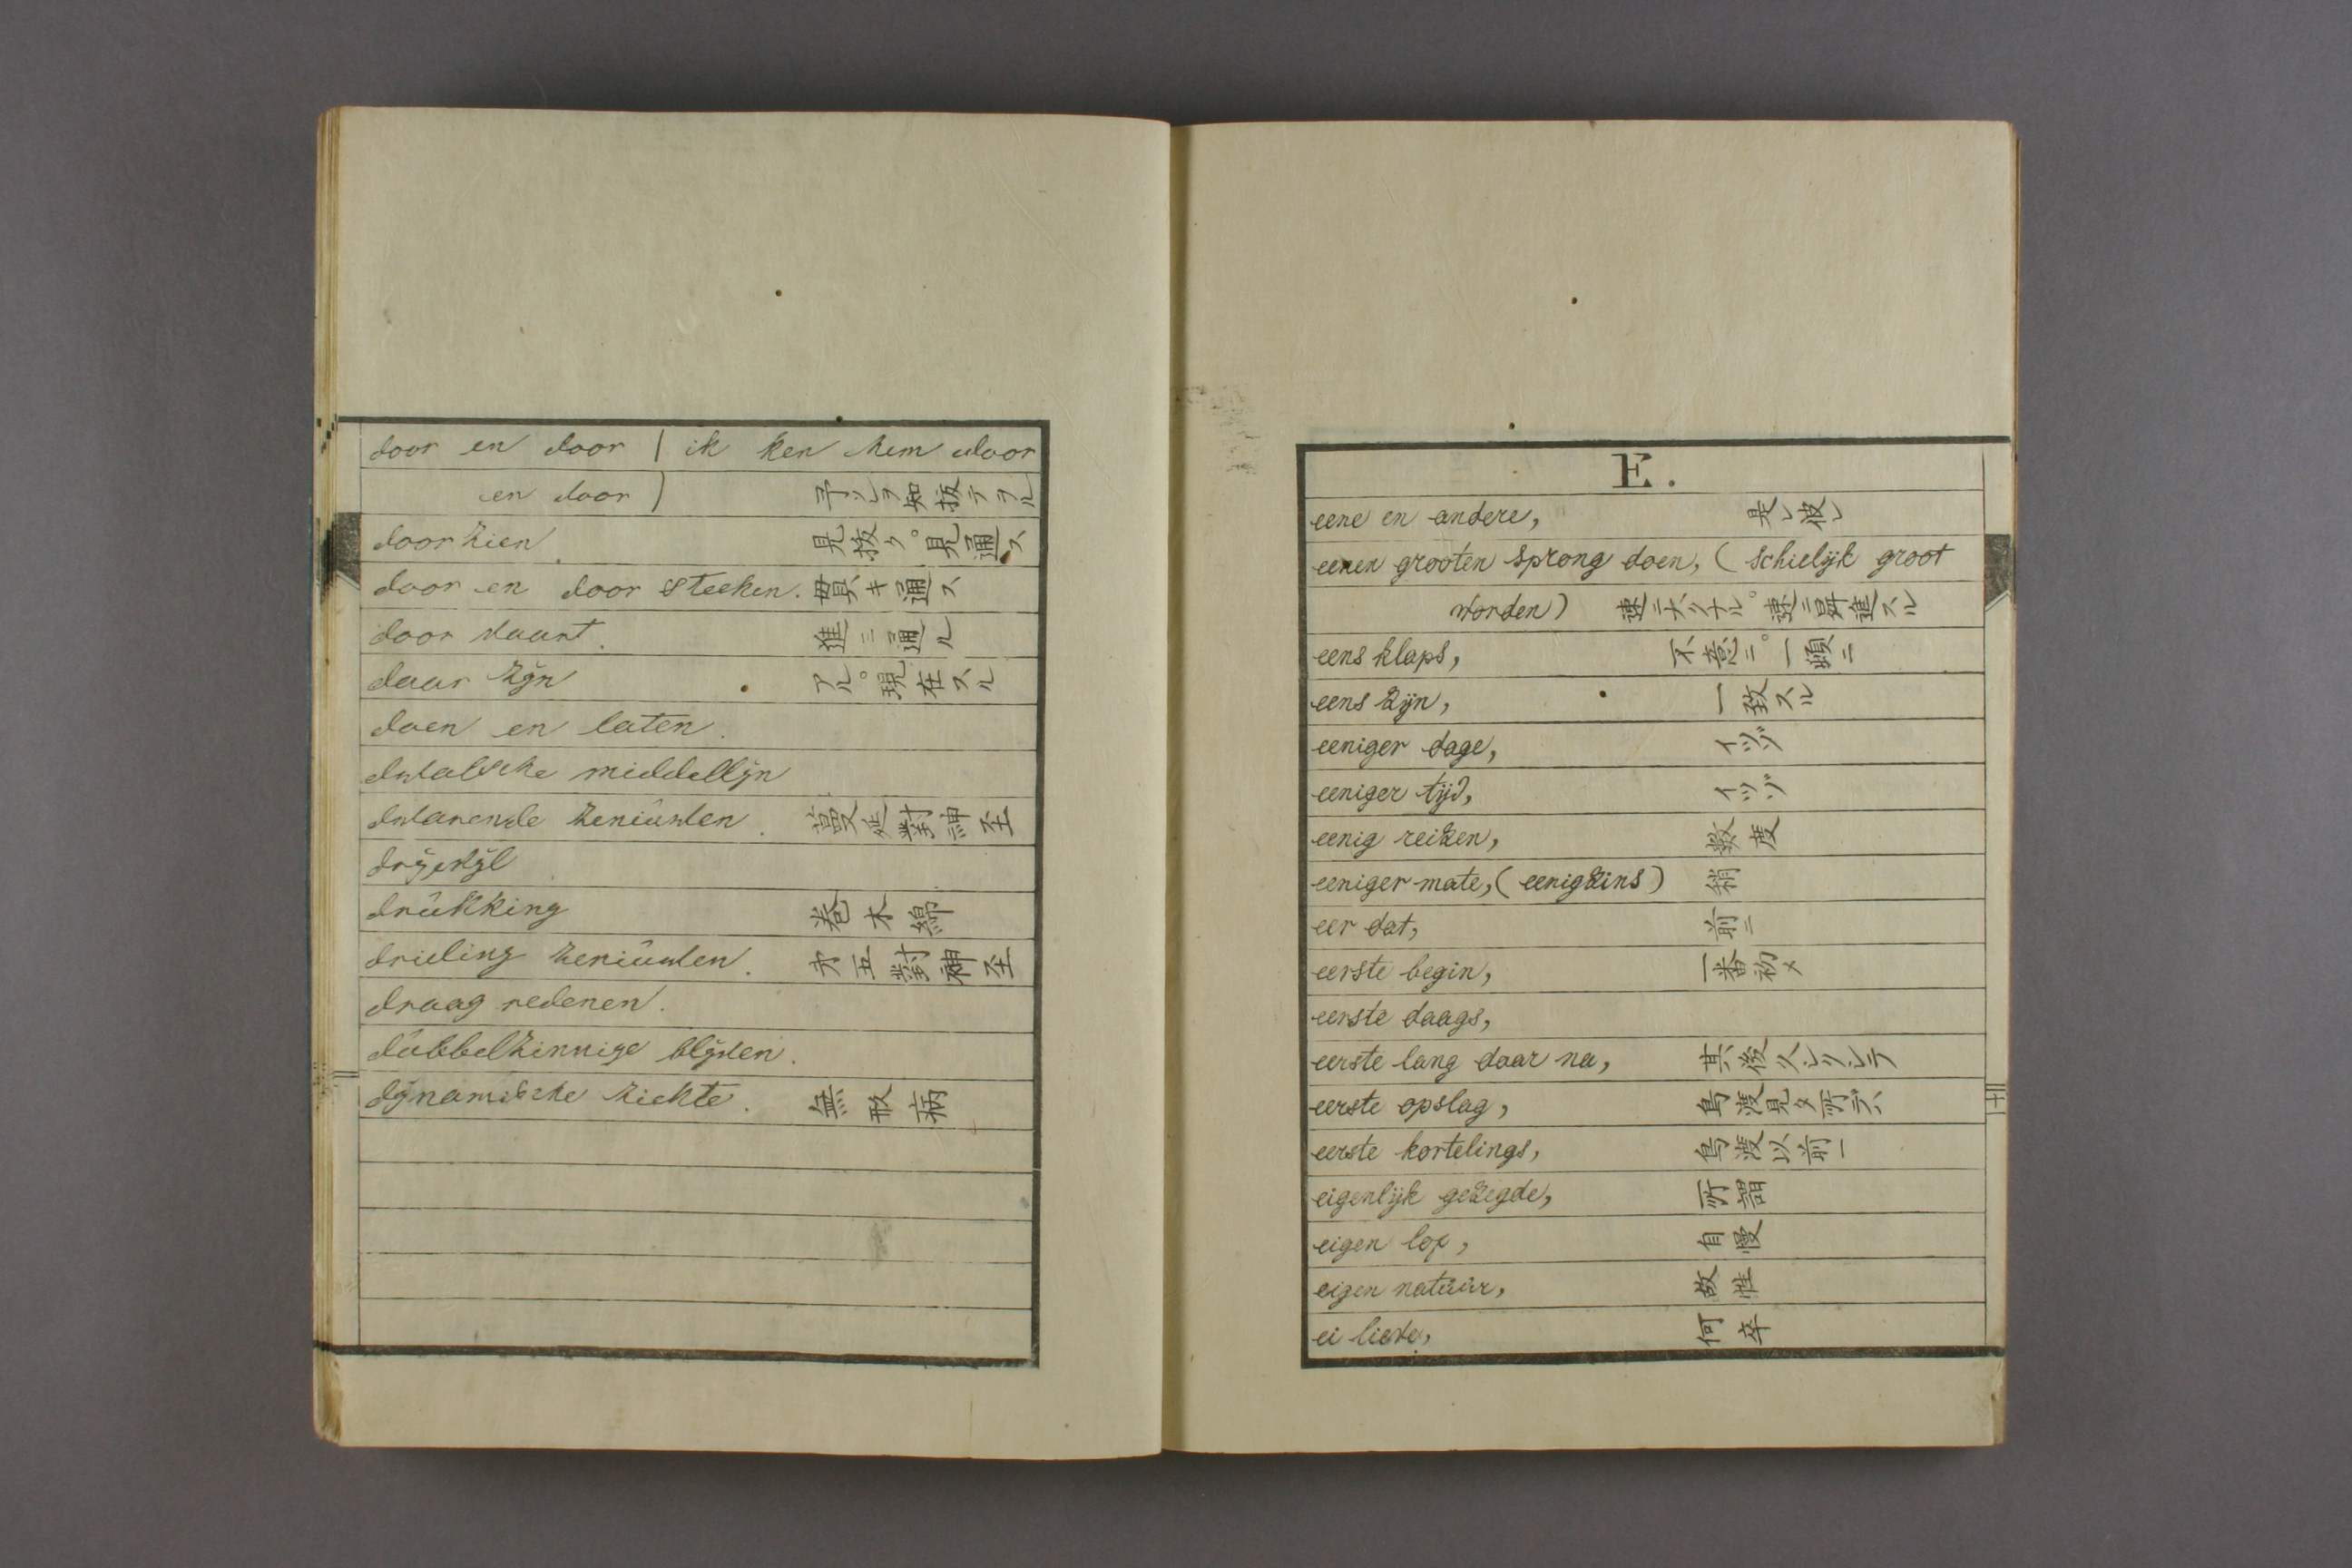 door en door ( ik ken hem door
en door ) 予ソレヲ知抜テヲル
doorzien. 見抜ク。見通ス
door en door steeken. 貫キ通ス
door vaart. 進ニ通ル
daar zÿn アル。現在スル
doen en laten.
dwalsche middellÿn
dwalende zeniuwen. 蔓延對神圣
drÿvÿl
drukking 巻木綿
drieling zeniuwen. 才五對神圣
draag redenen.
dubbelzinnige blÿven.
dÿnamische ziekte. 無形病
E.
eene en andere, 是レ彼レ
eenen grooten sprong doen, ( schielijk groot
worden) 速ニ大クナル。速ニ昇進スル
eens klaps, 不意ニ。一頓ニ
eens zijn, 一致スル
eeniger dage, イツゾ
eeniger tijd, イツゾ
eenig reizen, 数度
eeniger mate, (eenigzins) 稍
eer dat, 前ニ
eerste begin, 一番初メ
eerste daags,
eerste lang daar na, 其後久シクシテ
eerste opslag, 鳥渡見タ所デハ
eerste kortelings, 鳥渡以前
eigenlijk gezegde, 所謂
eigen lof, 自慢
eigen natuur, 故性
ei lieve, 何卒
十三